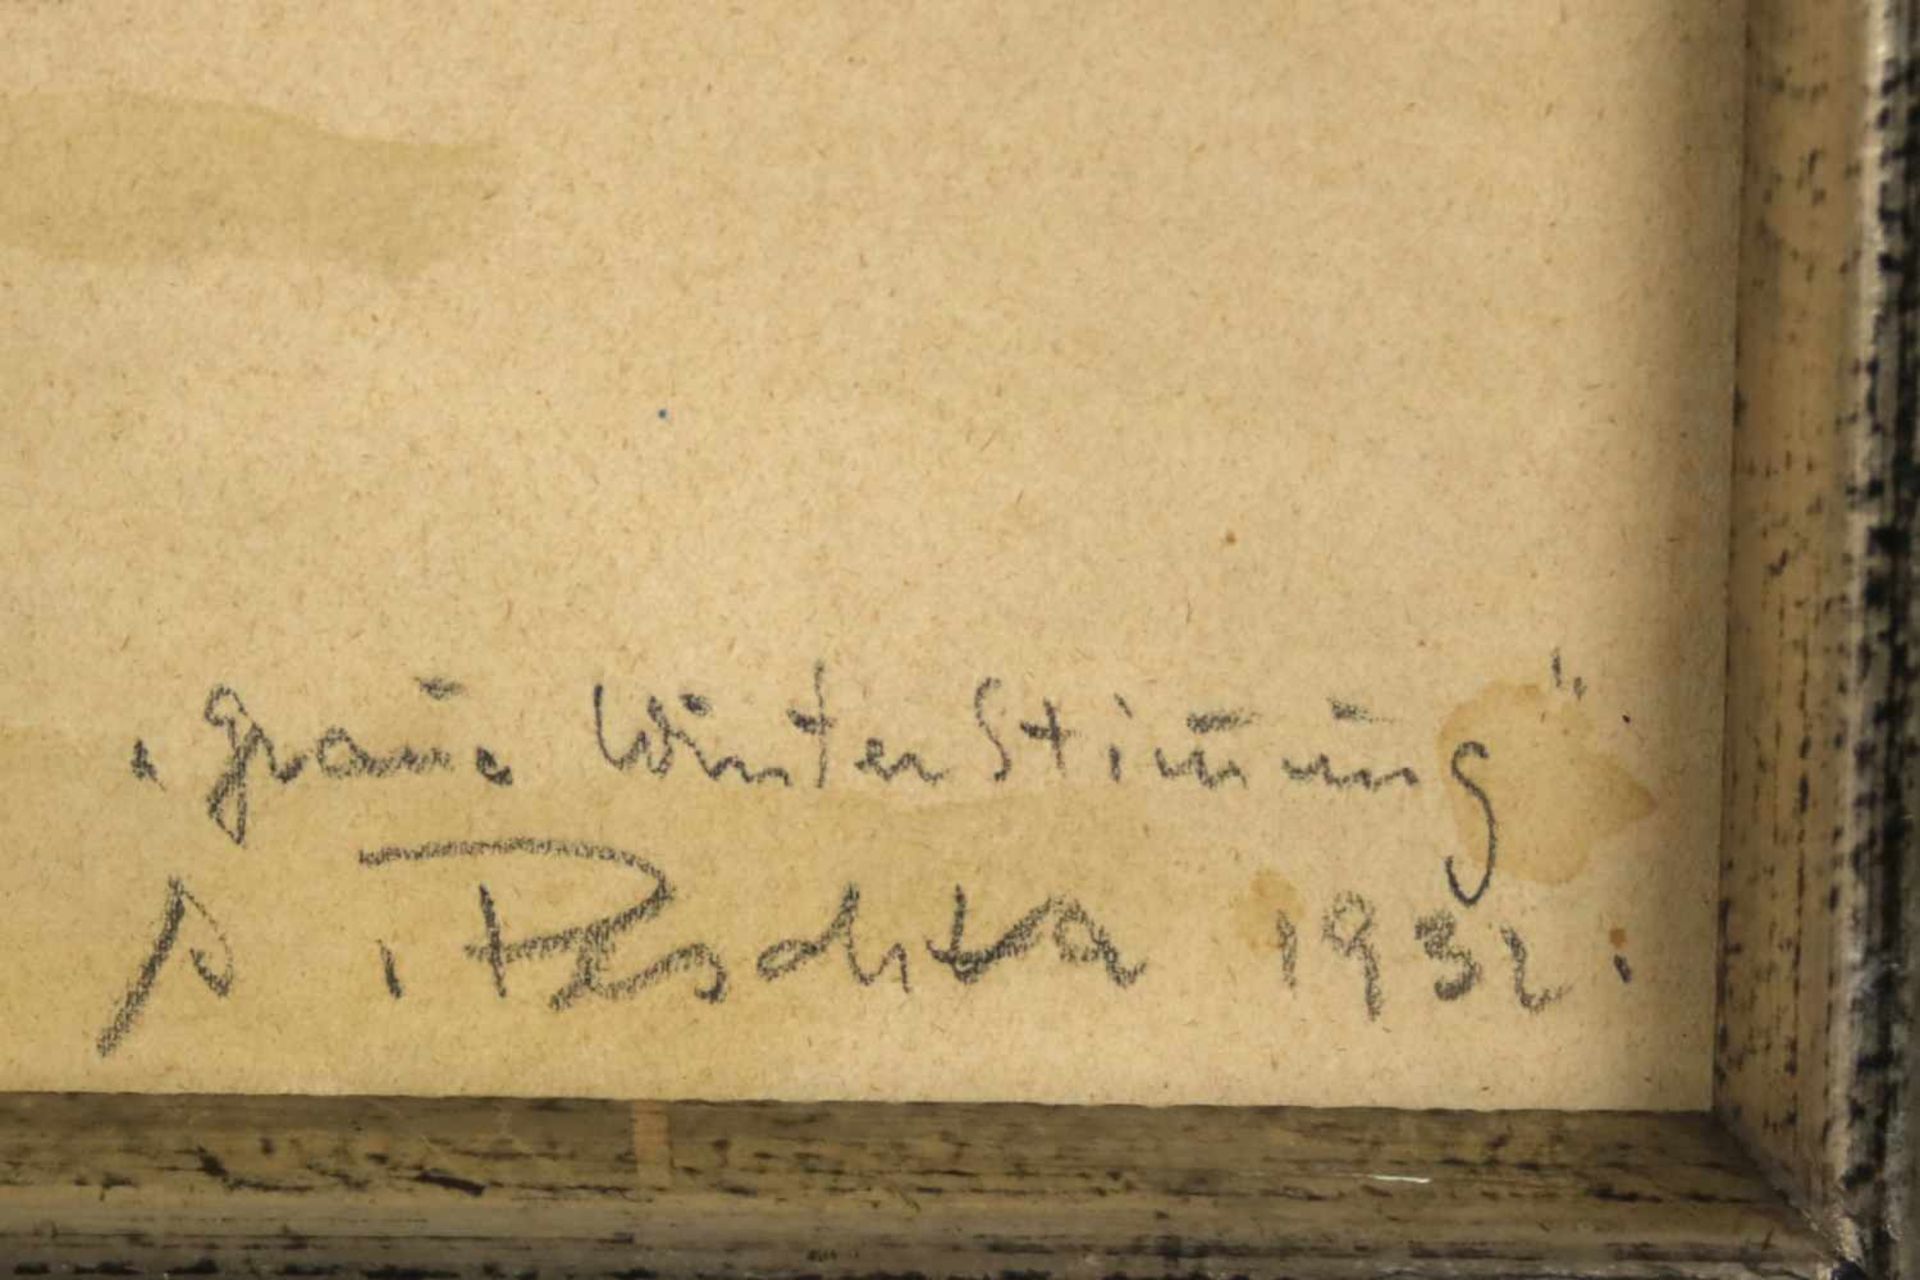 „Graue Winter Stim̅ung"
A. Peschka 1932.